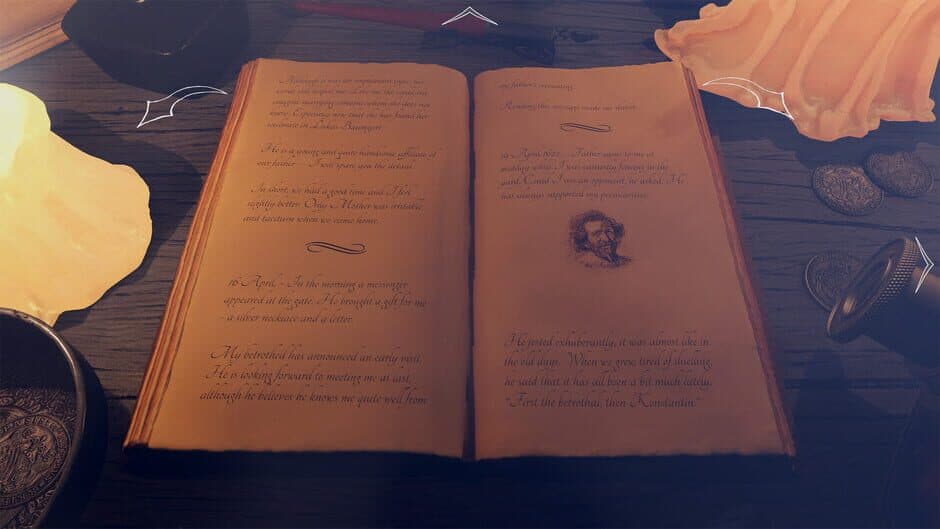 He is a young and quite handsome affiliate of
our father - I will spare you the details
In short, we had a good time and I felt
slightly better. Only Mother was irritable
and taciturn when we came home.
16 April. - In the morning a messenger
appeared at the gate. He brought a gift for me
- a silver necklace and a letter.
My betrothed has announced an early visit.
He is looking forward to meeting me at last,
although he believes he knows me quite well from
my father's recounting.
Reading this message made me shiver.
19 April 1622. - Father came to me at
midday while I was currently fencing in the
yard. Could I use an opponent, he asked. He
has always supported my peculiarities.
He jested exhuberantly, it was almost like in
the old days. When we grew tired of dueling,
he said that it has all been a bit much lately.
"First the betrothal, then Konstantin."